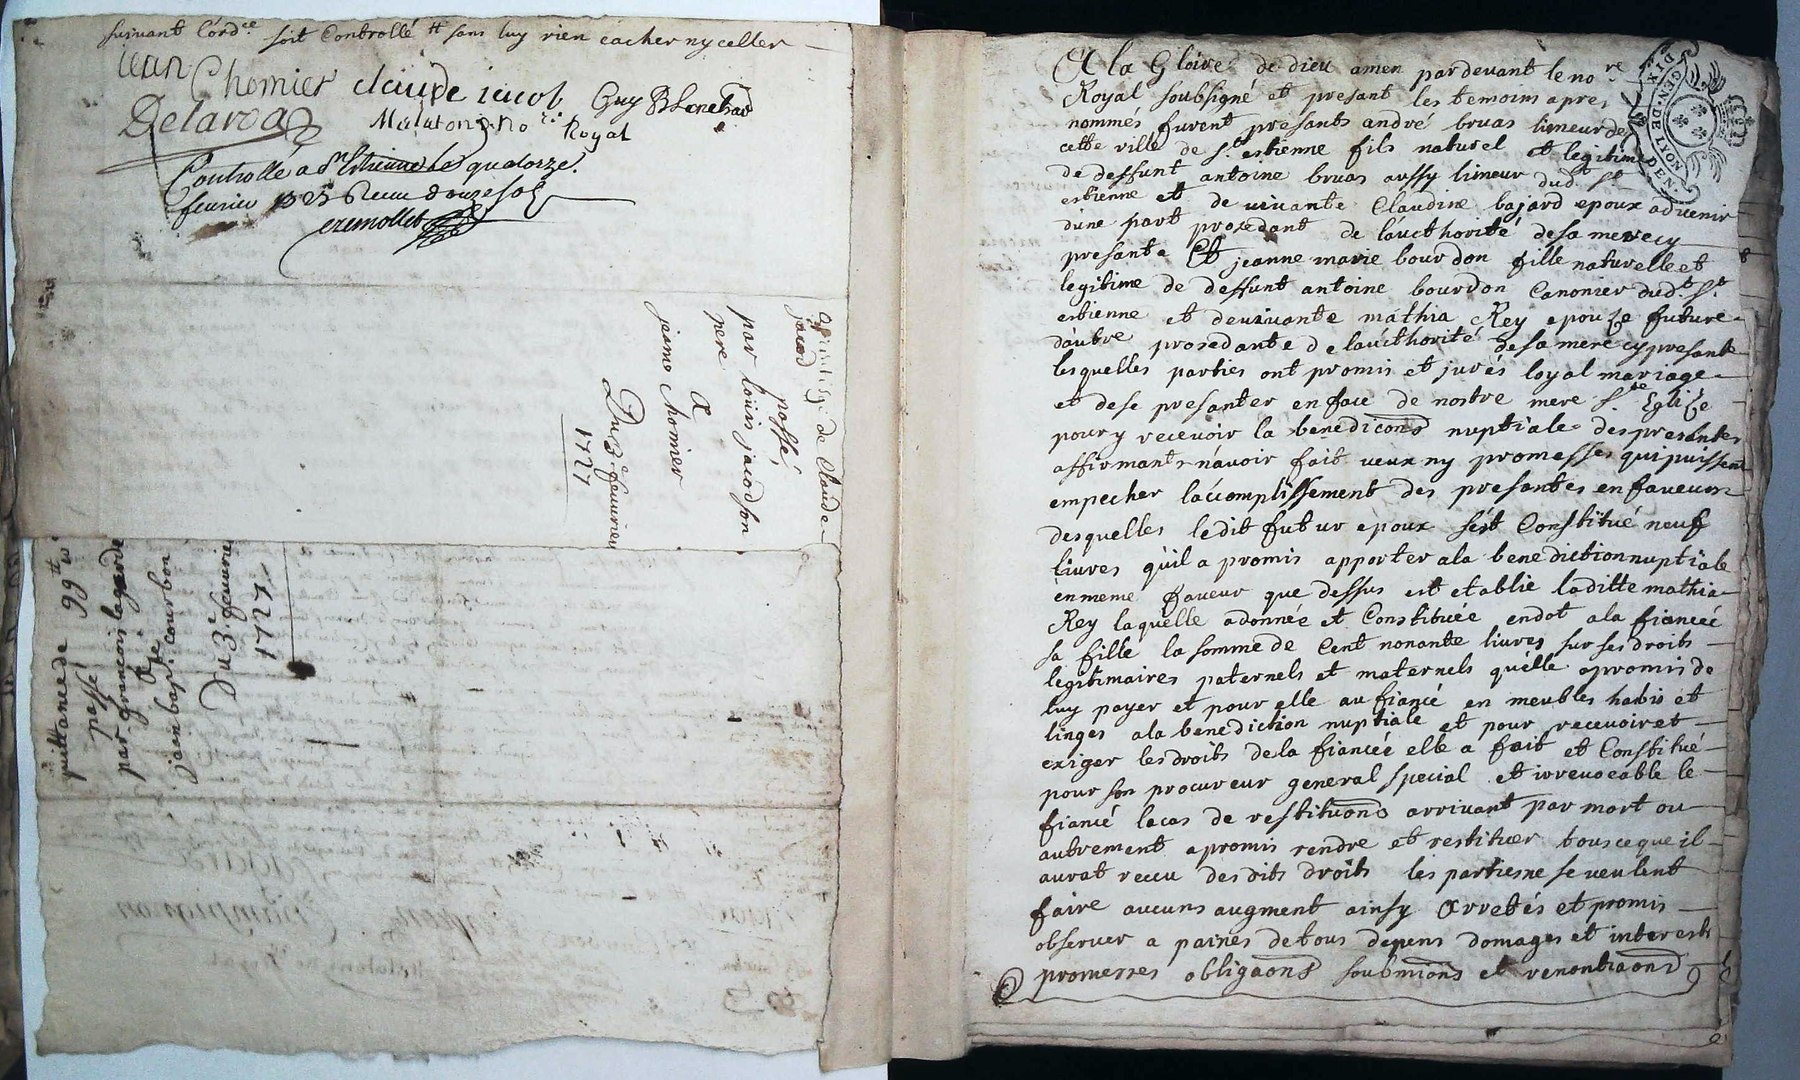 suivant l'ord.ce soit Controllé tt sans luy rien cacher ny celler
jean Chomier claude jacob Guy
Delaroa Malaton no.re Royal
Controllé a St Etienne le quatorze
fevrier Receu douze sols
apprentisge de Claude
jacod
passé
par louis jacod son
pere
a
jeame chomier
Du 3e feuvrier
1727
quittance de 99tt
passé
par francois lagarde
a
jaen bap.te courbon
Du 3e feuvrier
1727
GEN. DE LYON
A la Gloire de dieu amen pardevant le no.re
Royal soubsigné et presant les temoins apres
nommés furent presants andré bruas limeur de
cette ville de St estienne fils naturel et legitime
de deffunt antoine bruas aussy limeur dud. St
estienne et de vivante Claudine bajard epoux advenir
dune part prosedant de lauthorité desa mere cy
presante Et jeanne marie bourdon fille naturelle et
legitime de deffunt antoine bourdon Canonier dud.t St
estienne et devivante mathia Rey epouze future
dautre prosedante de laucthorité desa mere cy presante
lesquelles parties ont promis et jurés loyal mariage
et dese presanter en face de nostre mere S.te Eglize
pour y recevoir la benedicons nuptiale des presantes
affirmants navoir fait veux ny promesses qui puissent
empecher laccomplissement des presantes en faveur
desquelles ledit futur epoux s'est Constitué neuf
livres quil a promis apporter ala benediction nuptiale
en meme faveur que dessus est etablie laditte mathia
Rey laquelle adonnée et Constituée endot ala fiancée
sa fille la somme de Cent nonante livres sur ses droits
legitimaires paternels et maternels quelle apromis de
luy payer et pour elle au fiancé en meubles habis et
linges ala benediction nuptiale et pour recevoir et
exiger les droits dela fiancée elle a fait et Constitué
pour son procureur general special et irrevocable le
fiancé lecas de restituons arrivant par mort ou
autrement apromis rendre et restituer tous ce que il
aurat receu desdits droits les parties ne se veulent
faire aucuns augment ainsy Arretés et promis
observer a paines de tous depens domages et interests
promesses obligaons soubmions et renontiaons